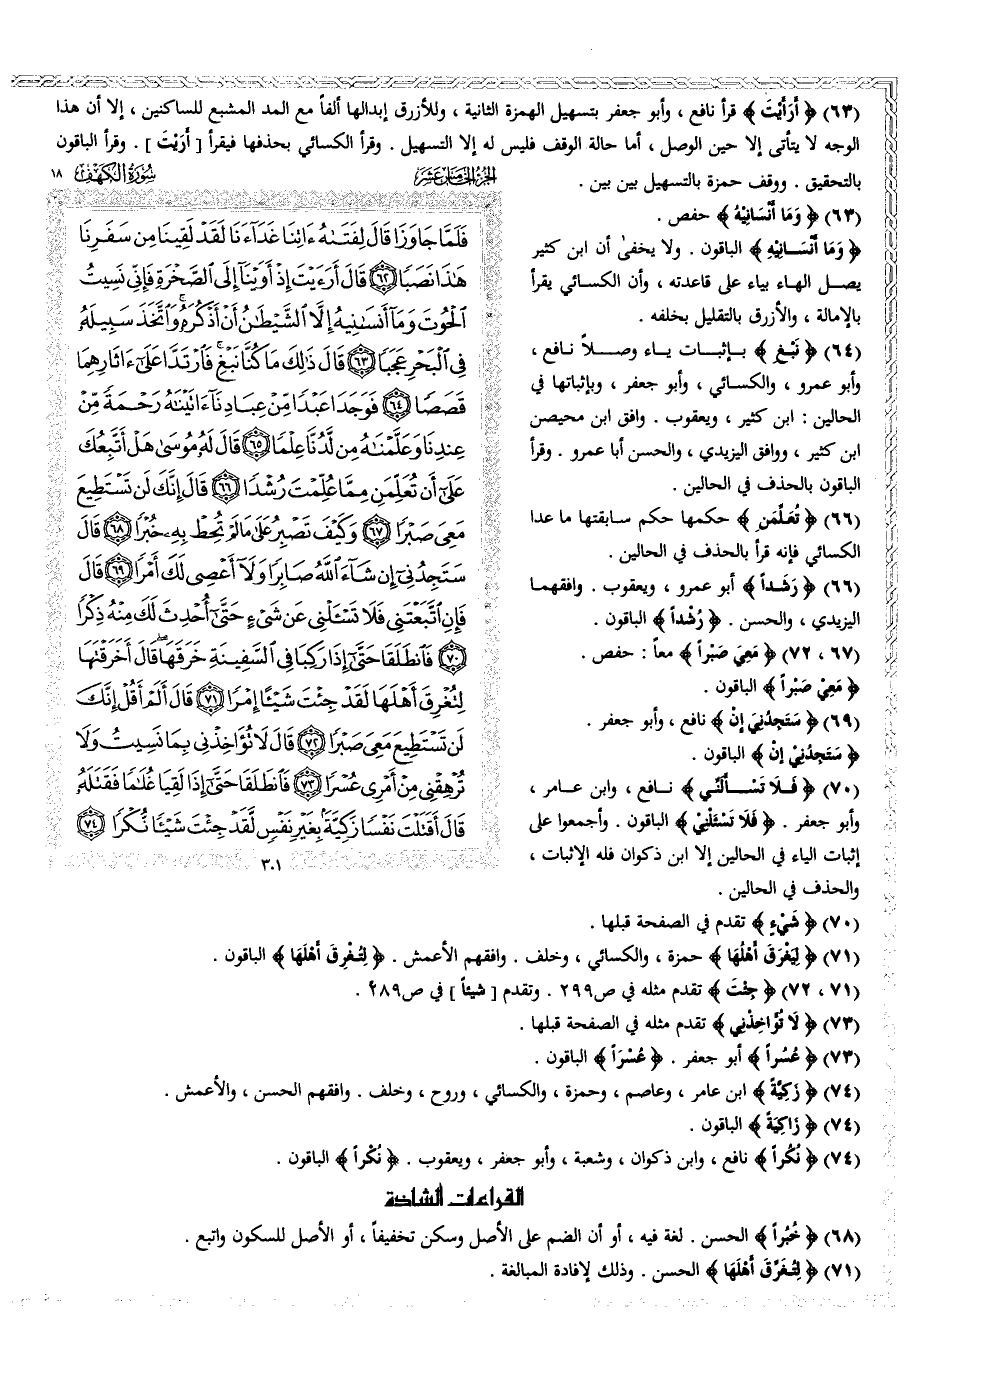 (٦٣) ﴿ أَرَأَيْتَ ﴾ قرأ نافع ، وأبو جعفر بتسهيل الهمزة الثانية ، وللأزرق إبدالها ألفاً مع المد المشبع للساكنين ، إلا أن هذا
الوجه لا يتأتى إلا حين الوصل ، أما حالة الوقف فليس له إلا التسهيل . وقرأ الكسائي بحذفها فيقرأ [ أَرَيْتَ ] . وقرأ الباقون
بالتحقيق . ووقف حمزة بالتسهيل بين بين .
(٦٣) ﴿ وَمَا أَنْسَانِيْهُ ﴾ حفص .
﴿ وَمَا أَنْسَـانِيْهِ ﴾ الباقون . ولا يخفىٰ أن ابن كثير
يصـل الهـاء بياء على قاعدته ، وأن الكسائي يقرأ
بالإمالة ، والأزرق بالتقليل بخلفه .
(٦٤) ﴿ نَبْغِ ﴾ بـإثبـات يـاء وصـلاً نافع ،
وأبو عمرو ، والكسائي ، وأبو جعفر ، وبإثباتها في
الحالين : ابن كثير ، ويعقوب . وافق ابن محيصن
ابن كثير ، ووافق اليزيدي ، والحسن أبا عمرو . وقرأ
الباقون بالحذف في الحالين .
(٦٦) ﴿ تُعَلِّمَنِ ﴾ حكمها حكم سابقتها ما عدا
الكسائي فإنه قرأ بالحذف في الحالين .
(٦٦) ﴿ رَشَداً ﴾ أبو عمرو ، ويعقوب . وافقهمـا
اليزيدي ، والحسن . ﴿ رُشْداً ﴾ الباقون .
(٦٧ ، ٧٢) ﴿ مَعِيَ صَبْراً ﴾ معاً : حفص .
﴿ مَعِيْ صَبْراً ﴾ الباقون .
(٦٩) ﴿ سَتَجِدُنِيَ إِنْ ﴾ نافع ، وأبو جعفر .
﴿ سَتَجِدُنِيْ إِنْ ﴾ الباقون .
(٧٠) ﴿ فَـلَا تَسْـأَلَنِّي ﴾ نـافع ، وابن عـامر ،
وأبو جعفر . ﴿ فَلَا تَسْئَلْنِيْ ﴾ الباقون . وأجمعوا على
إثبات الياء في الحالين إلا ابن ذكوان فله الإثبات ،
والحذف في الحالين .
الجزء الخامس عشر
سورة الكهف ١٨
فَلَمَّا جَاوَزَا قَالَ لِفَتَىٰهُ ءَاتِنَا غَدَآءَنَا لَقَدْ لَقِينَا مِن سَفَرِنَا
هَٰذَا نَصَبًا ٦٢ قَالَ أَرَءَيْتَ إِذْ أَوَيْنَآ إِلَى ٱلصَّخْرَةِ فَإِنِّي نَسِيتُ
ٱلْحُوتَ وَمَآ أَنسَىٰنِيهُ إِلَّا ٱلشَّيْطَٰنُ أَنْ أَذْكُرَهُۥ وَٱتَّخَذَ سَبِيلَهُۥ
فِي ٱلْبَحْرِ عَجَبًا ٦٣ قَالَ ذَٰلِكَ مَا كُنَّا نَبْغِ ۚ فَٱرْتَدَّا عَلَىٰٓ ءَاثَارِهِمَا
قَصَصًا ٦٤ فَوَجَدَا عَبْدًا مِّنْ عِبَادِنَآ ءَاتَيْنَٰهُ رَحْمَةً مِّنْ
عِندِنَا وَعَلَّمْنَٰهُ مِن لَّدُنَّا عِلْمًا ٦٥ قَالَ لَهُۥ مُوسَىٰ هَلْ أَتَّبِعُكَ
عَلَىٰٓ أَن تُعَلِّمَنِ مِمَّا عُلِّمْتَ رُشْدًا ٦٦ قَالَ إِنَّكَ لَن تَسْتَطِيعَ
مَعِيَ صَبْرًا ٦٧ وَكَيْفَ تَصْبِرُ عَلَىٰ مَا لَمْ تُحِطْ بِهِۦ خُبْرًا ٦٨ قَالَ
سَتَجِدُنِيٓ إِن شَآءَ ٱللَّهُ صَابِرًا وَلَآ أَعْصِي لَكَ أَمْرًا ٦٩ قَالَ
فَإِنِ ٱتَّبَعْتَنِي فَلَا تَسْـَٔلْنِي عَن شَيْءٍ حَتَّىٰٓ أُحْدِثَ لَكَ مِنْهُ ذِكْرًا
٧٠ فَٱنطَلَقَا حَتَّىٰٓ إِذَا رَكِبَا فِي ٱلسَّفِينَةِ خَرَقَهَا ۖ قَالَ أَخَرَقْتَهَا
لِتُغْرِقَ أَهْلَهَا لَقَدْ جِئْتَ شَيْـًٔا إِمْرًا ٧١ قَالَ أَلَمْ أَقُلْ إِنَّكَ
لَن تَسْتَطِيعَ مَعِيَ صَبْرًا ٧٢ قَالَ لَا تُؤَاخِذْنِي بِمَا نَسِيتُ وَلَا
تُرْهِقْنِي مِنْ أَمْرِي عُسْرًا ٧٣ فَٱنطَلَقَا حَتَّىٰٓ إِذَا لَقِيَا غُلَٰمًا فَقَتَلَهُۥ
قَالَ أَقَتَلْتَ نَفْسًا زَكِيَّةًۢ بِغَيْرِ نَفْسٍ لَّقَدْ جِئْتَ شَيْـًٔا نُّكْرًا ٧٤
٣٠١
(٧٠) ﴿ شَيْءٍ ﴾ تقدم في الصفحة قبلها .
(٧١) ﴿ لِيَغْرَقَ أَهْلُهَا ﴾ حمزة ، والكسائي ، وخلف . وافقهم الأعمش . ﴿ لِتُغْرِقَ أَهْلَهَا ﴾ الباقون .
(٧١ ، ٧٢) ﴿ جِئْتَ ﴾ تقدم مثله في ص٢٩٩ . وتقدم [ شيئاً ] في ص٢٨٩ .
(٧٣) ﴿ لَا تُؤَاخِذْنِي ﴾ تقدم مثله في الصفحة قبلها .
(٧٣) ﴿ عُسُراً ﴾ أبو جعفر . ﴿ عُسْرَاً ﴾ الباقون .
(٧٤) ﴿ زَكِيَّةً ﴾ ابن عامر ، وعاصم ، وحمزة ، والكسائي ، وروح ، وخلف . وافقهم الحسن ، والأعمش .
(٧٤) ﴿ زَاكِيَةً ﴾ الباقون .
(٧٤) ﴿ نُكُراً ﴾ نافع ، وابن ذكوان ، وشعبة ، وأبو جعفر ، ويعقوب . ﴿ نُكْراً ﴾ الباقون .
القراءات الشاذة
(٦٨) ﴿ خُبُراً ﴾ الحسن . لغة فيه ، أو أن الضم على الأصل وسكن تخفيفاً ، أو الأصل للسكون واتبع .
(٧١) ﴿ لِتُغَرِّقَ أَهْلَهَا ﴾ الحسن . وذلك لإفادة المبالغة .